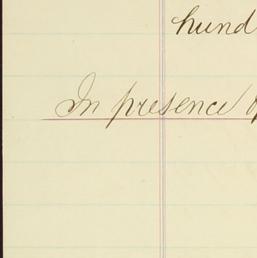 hund
In presence of